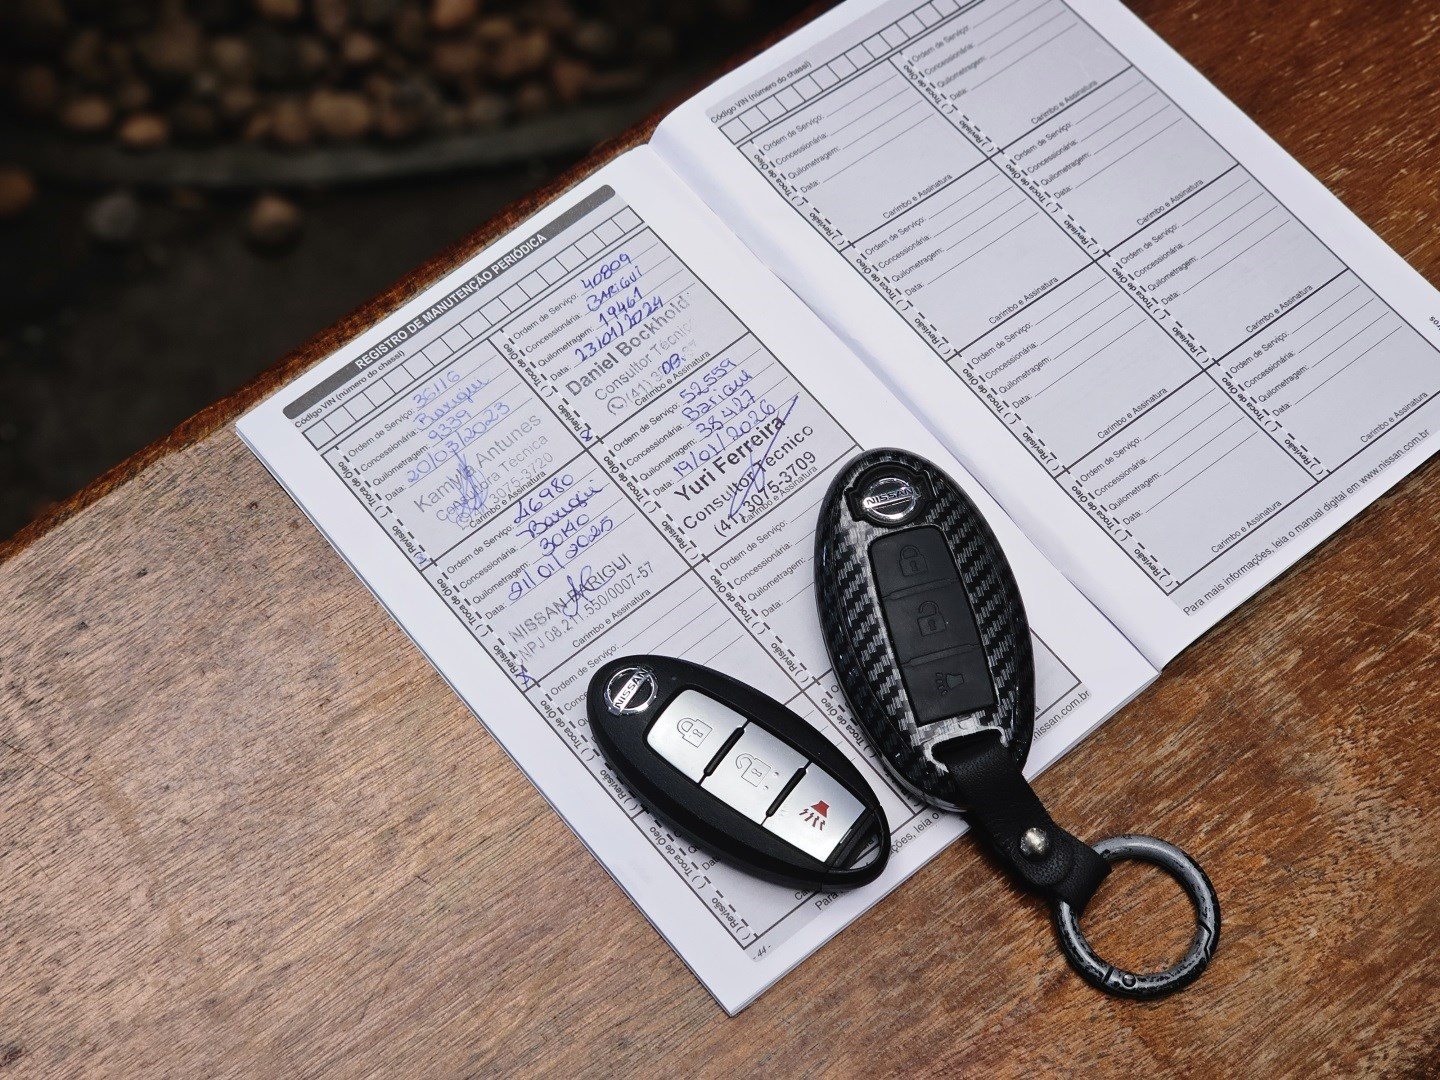 REGISTRO DE MANUTENÇÃO PERIÓDICA
Código VIN (número do chassi)
Ordem de Serviço: 36116
Concessionária: Barigui
Quilometragem: 9339
Data: 20/03/2023
Antunes
Técnica
3075-3720
Carimbo e Assinatura
Troca de Óleo
Revisão
Ordem de Serviço: 40809
Concessionária: BARIGUI
Quilometragem: 19461
Data: 23/01/2024
Daniel Bockhold
Consultor Técnico
Carimbo e Assinatura
Troca de Óleo
Revisão
Ordem de Serviço: 46980
Concessionária: Barigui
Quilometragem: 30140
Data: 21/01/2025
NISSAN BARIGUI
CNPJ 08.217.550/0007-57
Carimbo e Assinatura
Troca de Óleo
Revisão
Ordem de Serviço: 52559
Concessionária: Barigui
Quilometragem: 38427
Data: 19/01/2026
Yuri Ferreira
Consultor Técnico
(41) 3075-3709
Carimbo e Assinatura
Troca de Óleo
Revisão
Ordem de Serviço:
Troca de Óleo
Revisão
Ordem de Serviço:
Concessionária:
Quilometragem:
Data:
Troca de Óleo
Revisão
Troca de Óleo
Revisão
44
nissan.com.br
NISSAN
NISSAN
Código VIN (número do chassi)
Ordem de Serviço:
Concessionária:
Quilometragem:
Data:
Carimbo e Assinatura
Troca de Óleo
Revisão
Ordem de Serviço:
Concessionária:
Quilometragem:
Data:
Carimbo e Assinatura
Troca de Óleo
Revisão
Ordem de Serviço:
Concessionária:
Quilometragem:
Data:
Carimbo e Assinatura
Troca de Óleo
Revisão
Ordem de Serviço:
Concessionária:
Quilometragem:
Data:
Carimbo e Assinatura
Troca de Óleo
Revisão
Ordem de Serviço:
Concessionária:
Quilometragem:
Data:
Carimbo e Assinatura
Troca de Óleo
Revisão
Ordem de Serviço:
Concessionária:
Quilometragem:
Data:
Carimbo e Assinatura
Troca de Óleo
Revisão
Ordem de Serviço:
Concessionária:
Quilometragem:
Data:
Carimbo e Assinatura
Troca de Óleo
Revisão
Ordem de Serviço:
Concessionária:
Quilometragem:
Data:
Carimbo e Assinatura
Troca de Óleo
Revisão
Para mais informações, leia o manual digital em www.nissan.com.br